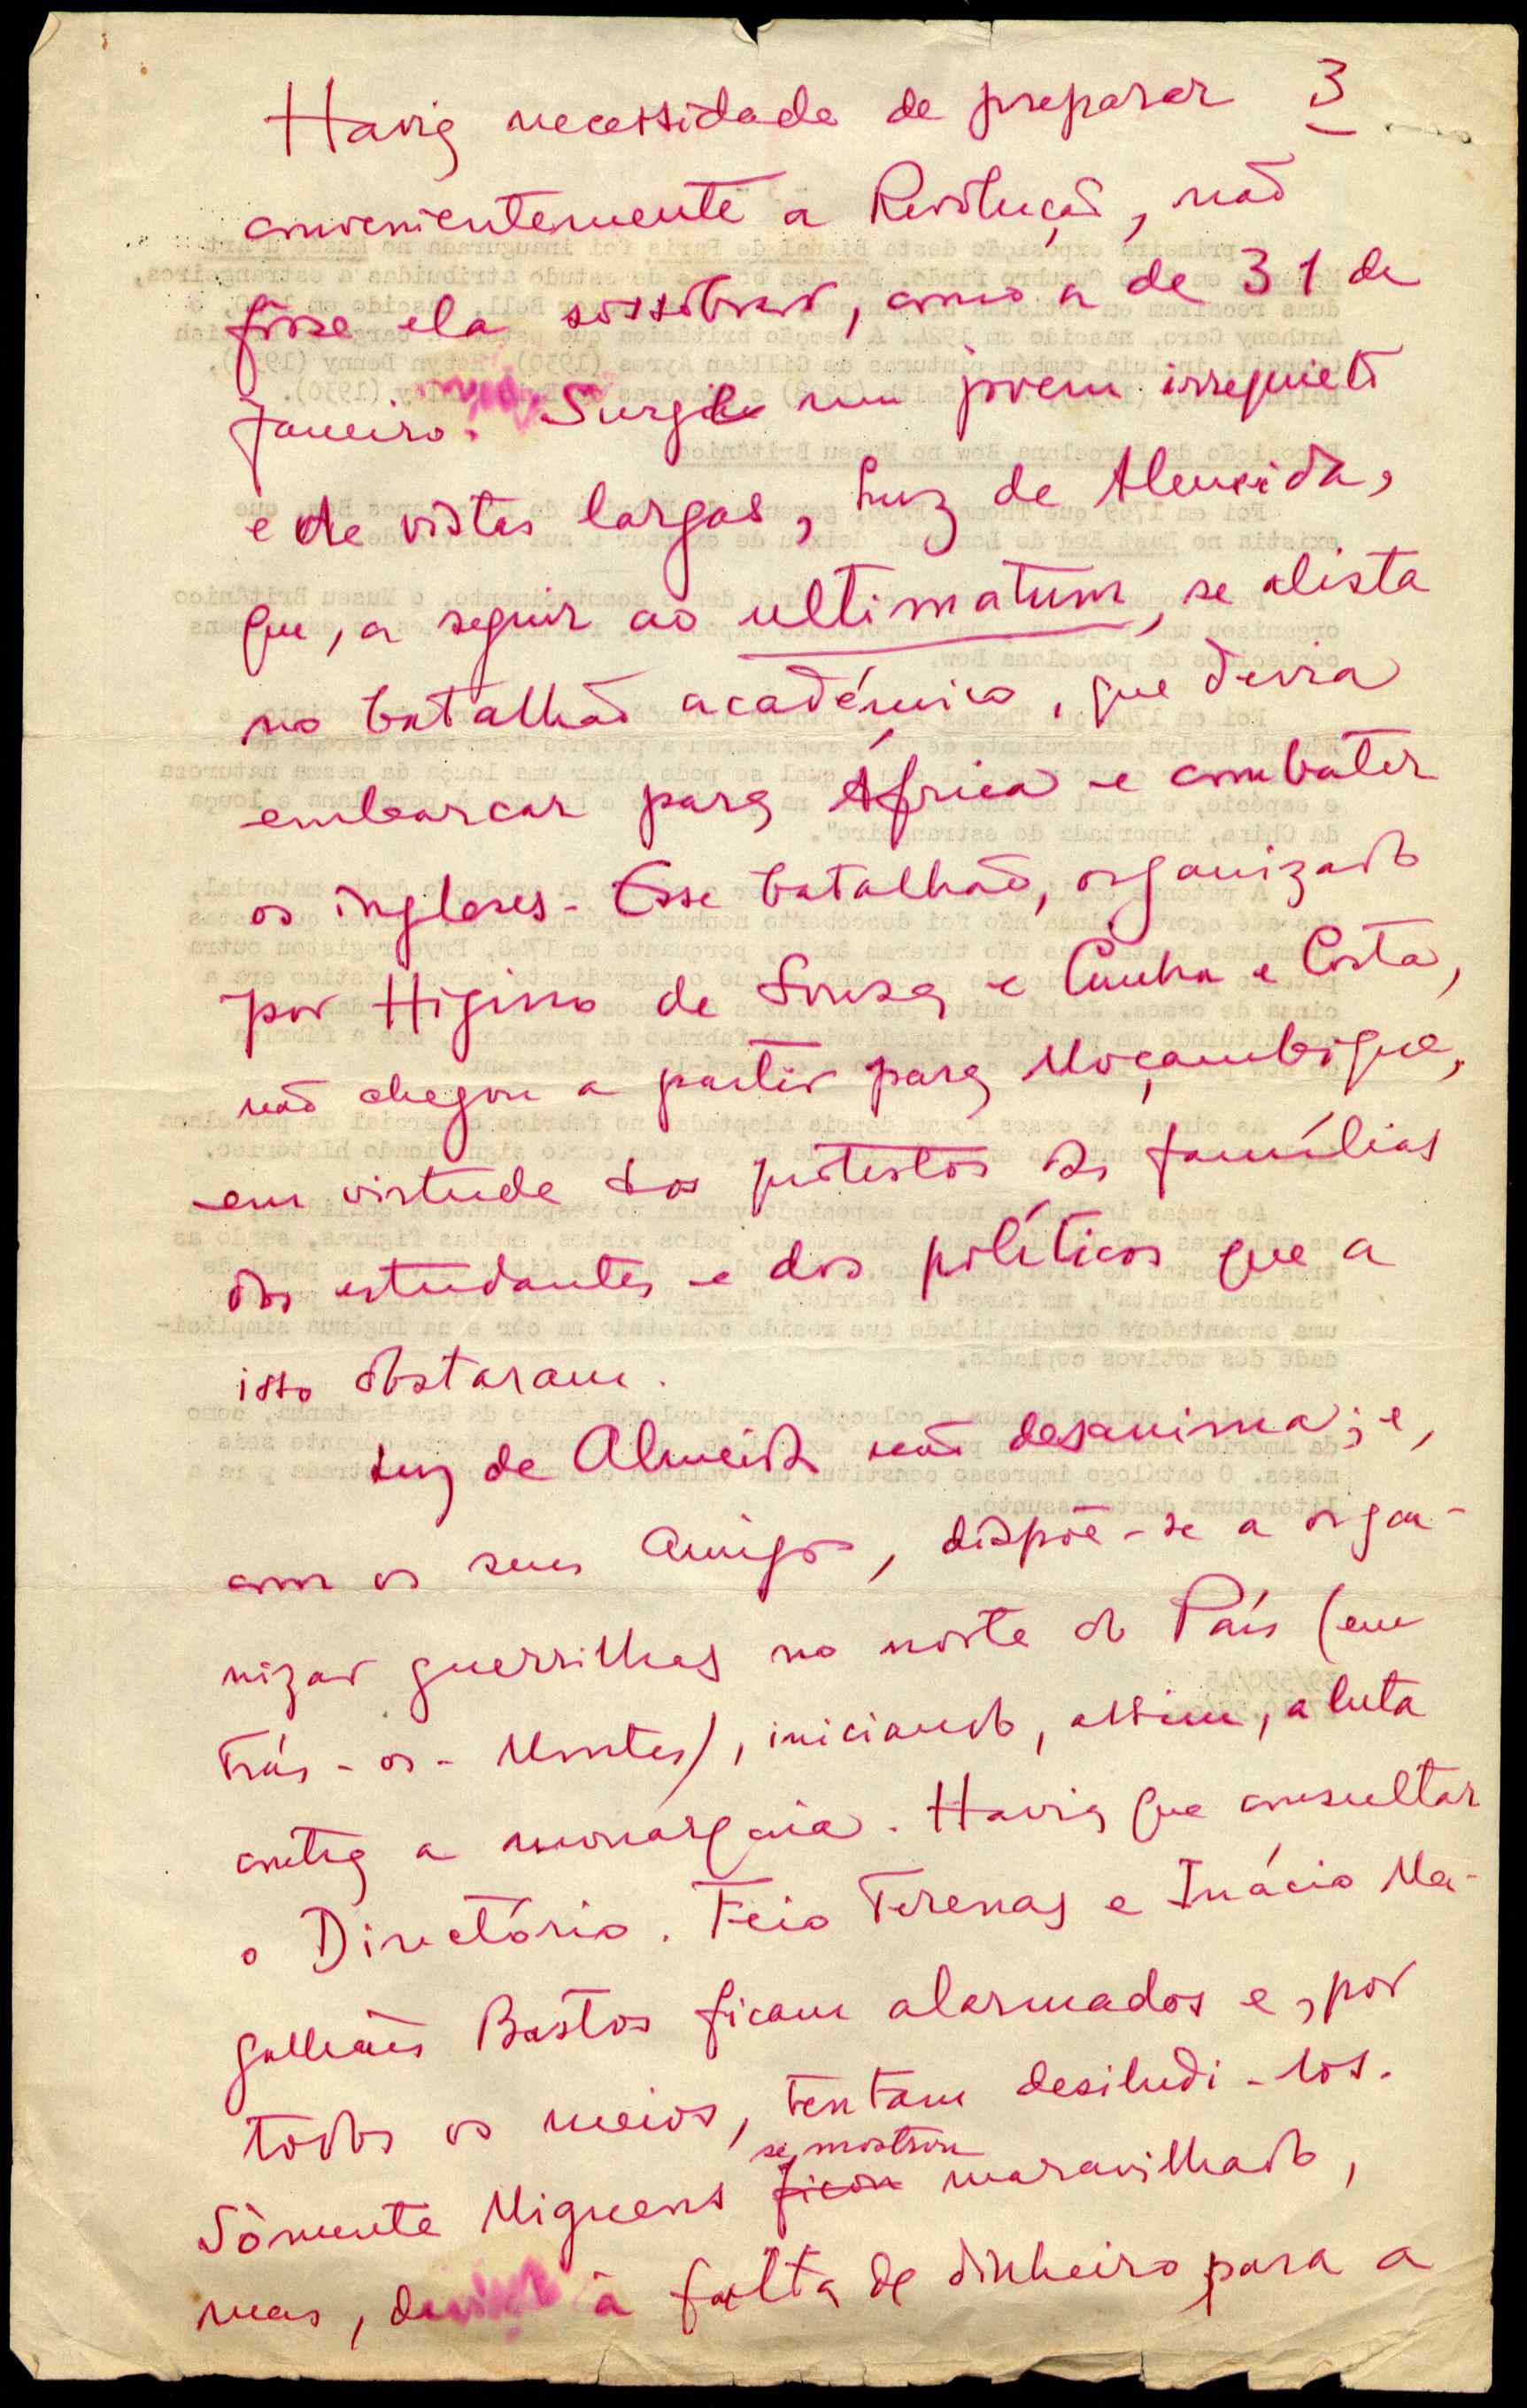 Havia necessidade de preparar 3
convenientemente a Revolução, não
fosse ela sossobrar, como a de 31 de
Janeiro. Surge um jovem irrequieto
e de vistas largas, Luz de Almeida,
que, a seguir ao ultimatum, se alista
no batalhão académico, que devia
embarcar para África e combater
os ingleses. Esse batalhão, organizado
por Higino de Sousa e Cunha e Costa,
não chegou a partir para Moçambique,
em virtude dos protestos das famílias
dos estudantes e dos políticos que a
isso obstaram.
Luz de Almeida não desanima; e,
com os seus amigos, dispõe-se a orga-
nizar guerrilhas no norte do País (em
Trás-os-Montes), iniciando, assim, a luta
contra a monarquia. Havia que consultar
o Directório. Feio Terenas e Inácio Ma-
galhães Bastos ficam alarmados e, por
todos os meios, tentam desiludi-los.
se mostrou
Sòmente Miguens ficou maravilhado,
mas, devido à falta de dinheiro para a